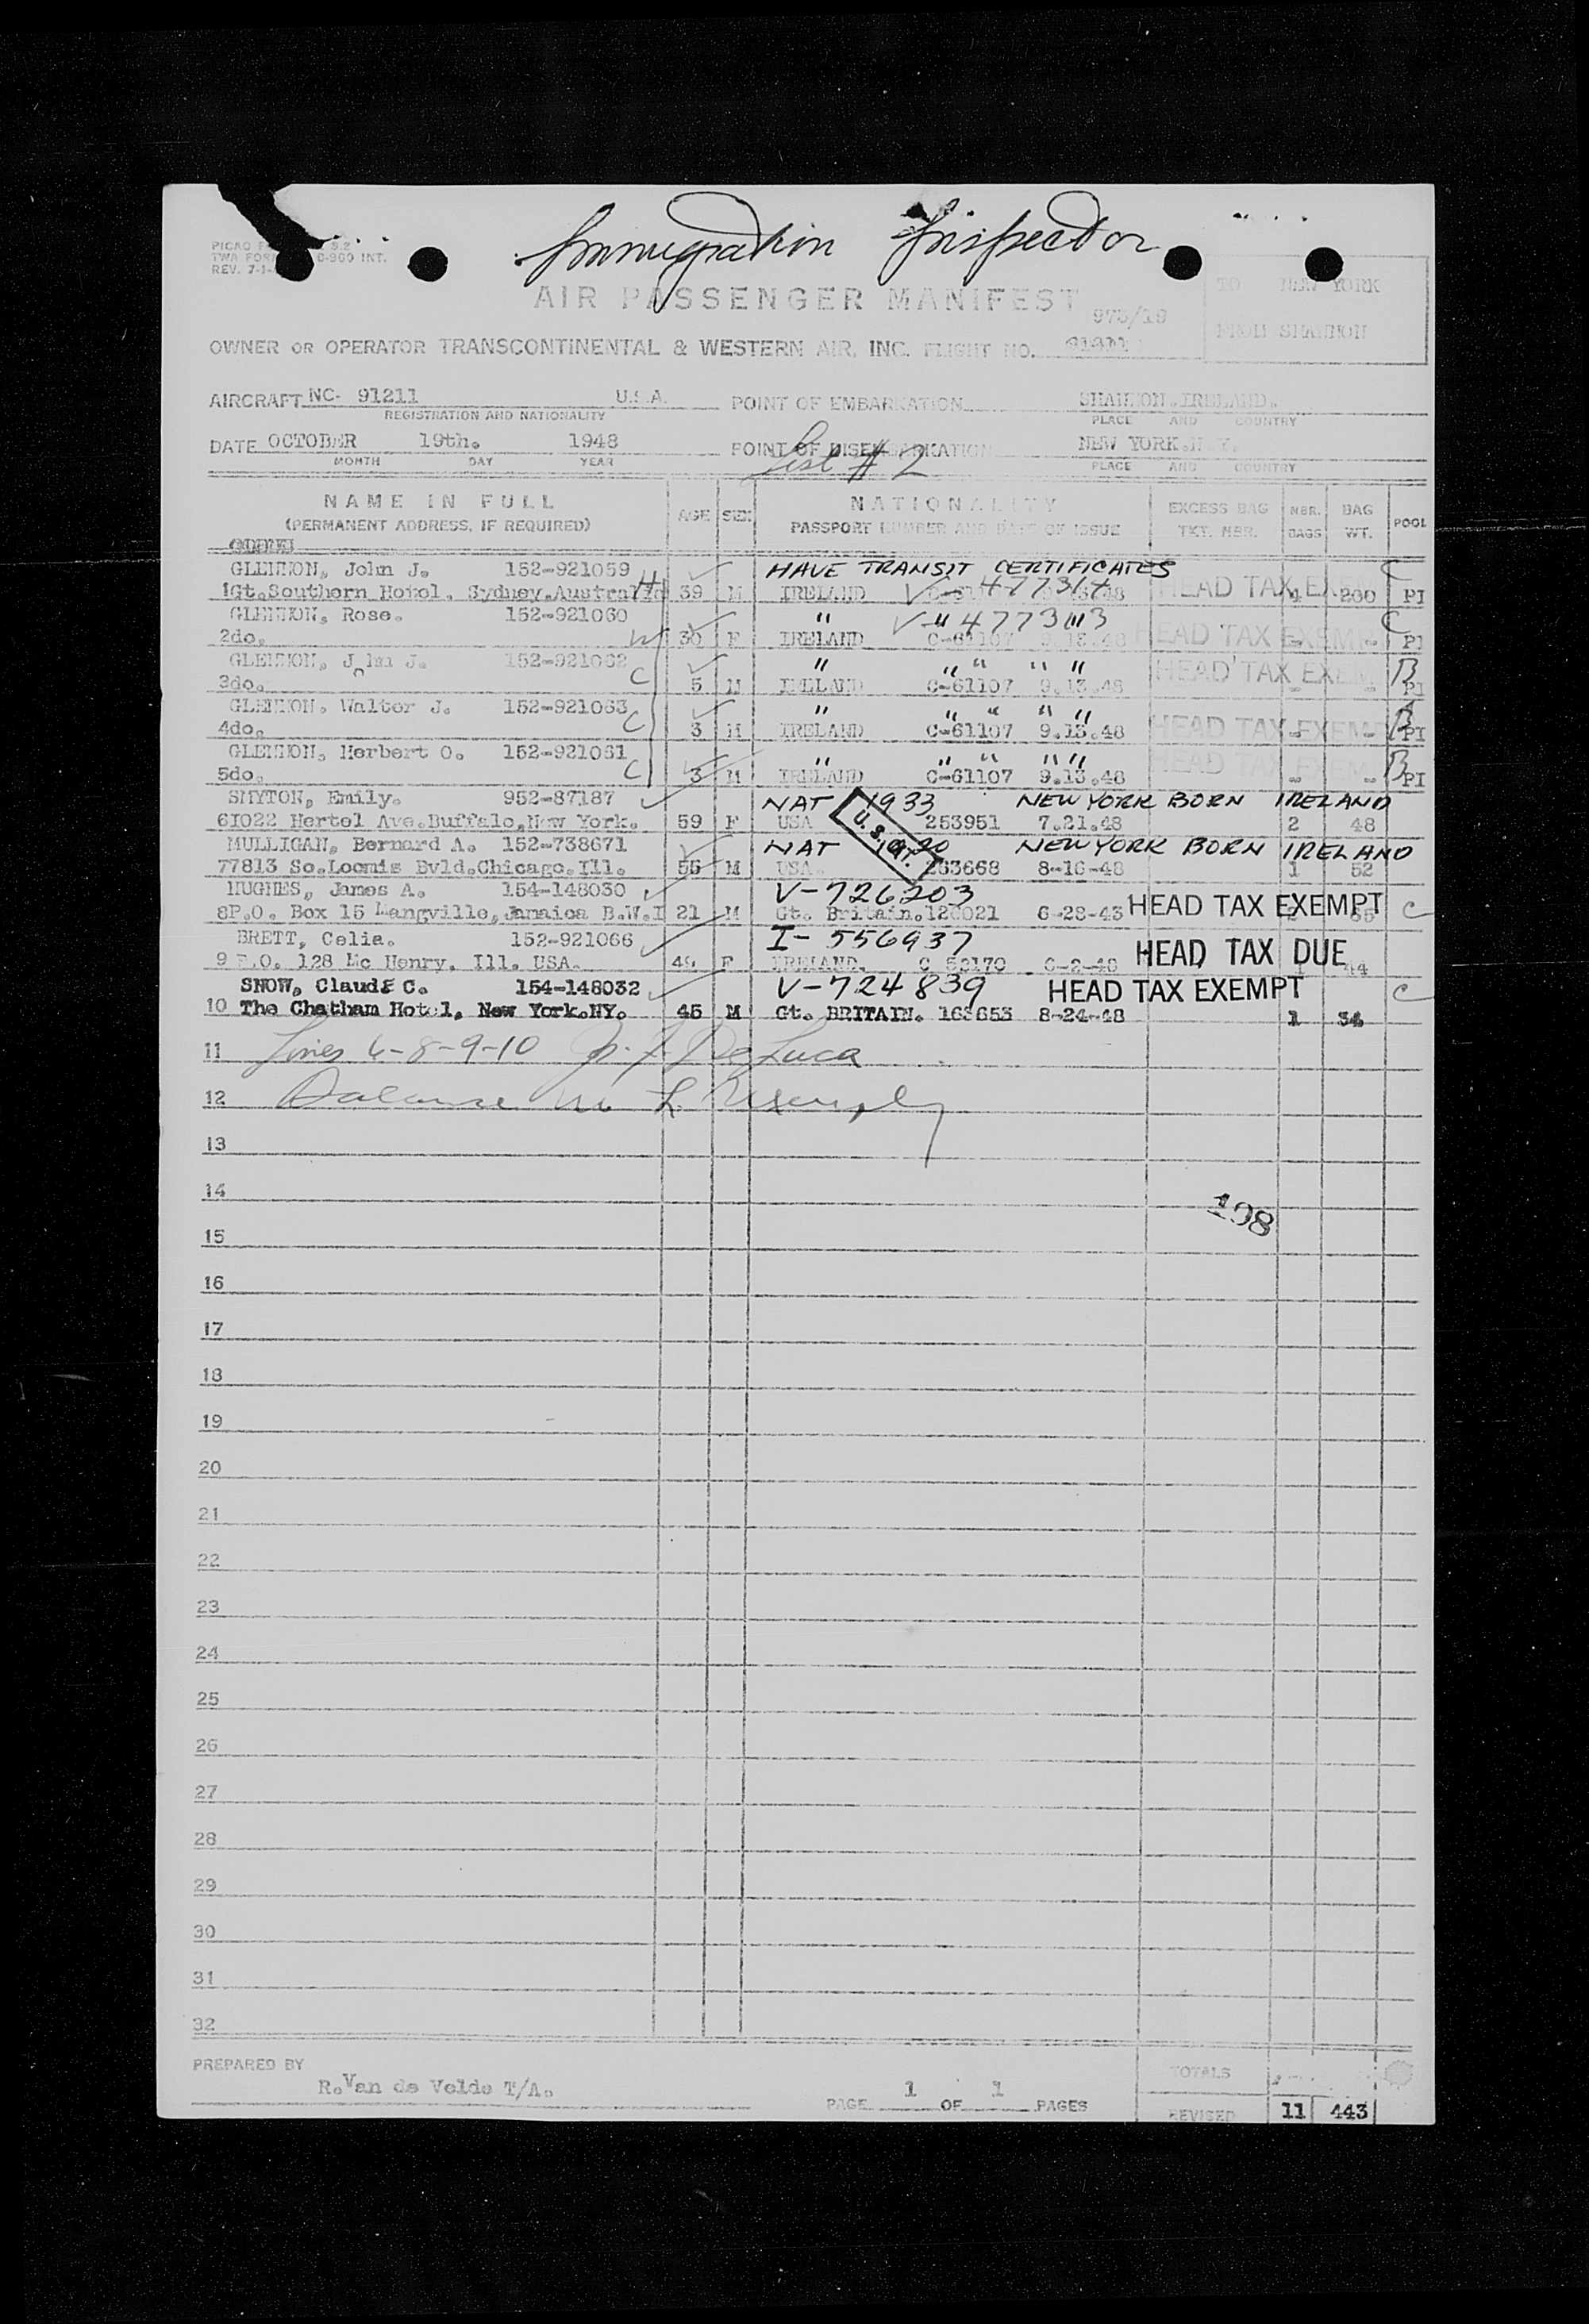 PICAO F S.2
TWA FOR 0-960 INT.
REV. 7-1-
Immigration Inspector
AIR PASSENGER MANIFEST
973/19
TO NEW YORK
FROM SHANNON
OWNER OR OPERATOR TRANSCONTINENTAL & WESTERN AIR, INC. FLIGHT NO.
AIRCRAFT NC- 91211 U.S.A. POINT OF EMBARKATION SHANNON.IRELAND.
REGISTRATION AND NATIONALITY PLACE AND COUNTRY
DATE OCTOBER 19th. 1948 POINT OF DISEMBARKATION NEW YORK.N.Y.
MONTH DAY YEAR PLACE AND COUNTRY
List # 2
NAME IN FULL AGE SEX NATIONALITY EXCESS BAG NBR. BAG POOL
(PERMANENT ADDRESS, IF REQUIRED) PASSPORT NUMBER AND DATE OF ISSUE TKT. NBR. BAGS WT.
GLENNON, John J. 152-921059 HAVE TRANSIT CERTIFICATES C
1Gt.Southern Hotel. Sydney.Australia H 39 M IRELAND V- 477314 HEAD TAX EXEM 200 PI
GLENNON, Rose. 152-921060 " V-" 477313 C
2do. W 30 F IRELAND C-61107 9.13.48 HEAD TAX EXEMP - PI
GLENNON, John J. 152-921062 " " " " " HEAD TAX EXEM B
3do. C 5 M IRELAND C-61107 9.13.48 - - PI
GLENNON. Walter J. 152-921063 " " " " "
4do. C 3 M IRELAND C-61107 9.13.48 HEAD TAX EXEMP - B PI
GLENNON, Herbert O. 152-921061 " " " " " HEAD TAX EXEM
5do. C 3 M IRELAND C-61107 9.13.48 - - B PI
SMYTON, Emily. 952-87187 NAT 1933 NEW YORK BORN IRELAND
61022 Hertel Ave.Buffalo,New York. 59 F USA U.S. CIT. 253951 7.21.48 2 48
MULLIGAN, Bernard A. 152-738671 NAT NEW YORK BORN IRELAND
77813 So.Loomis Bvld.Chicago.Ill. 55 M USA. 263668 8-16-48 1 52
HUGHES, James A. 154-148030 V-726203
8P.O. Box 15 Mangville,Jamaica B.W.I 21 M Gt. Britain.126021 6-28-43 HEAD TAX EXEMPT 65 C
BRETT, Celia. 152-921066 I- 556937
9 P.O. 128 Mc Henry. Ill. USA. F IRELAND. C 52170 6-2-48 HEAD TAX DUE 44
SNOW, Claude C. 154-148032 V-724839 HEAD TAX EXEMPT C
10 The Chatham Hotel, New York.NY. 45 M Gt. BRITAIN. 163653 8-24-48 1 34
11 Lines 6-8-9-10 De Luca
12 Balance
13
14
108
15
16
17
18
19
20
21
22
23
24
25
26
27
28
29
30
31
32
PREPARED BY TOTALS
R.Van de Velde T/A.
PAGE 1 OF 1 PAGES REVISED 11 443